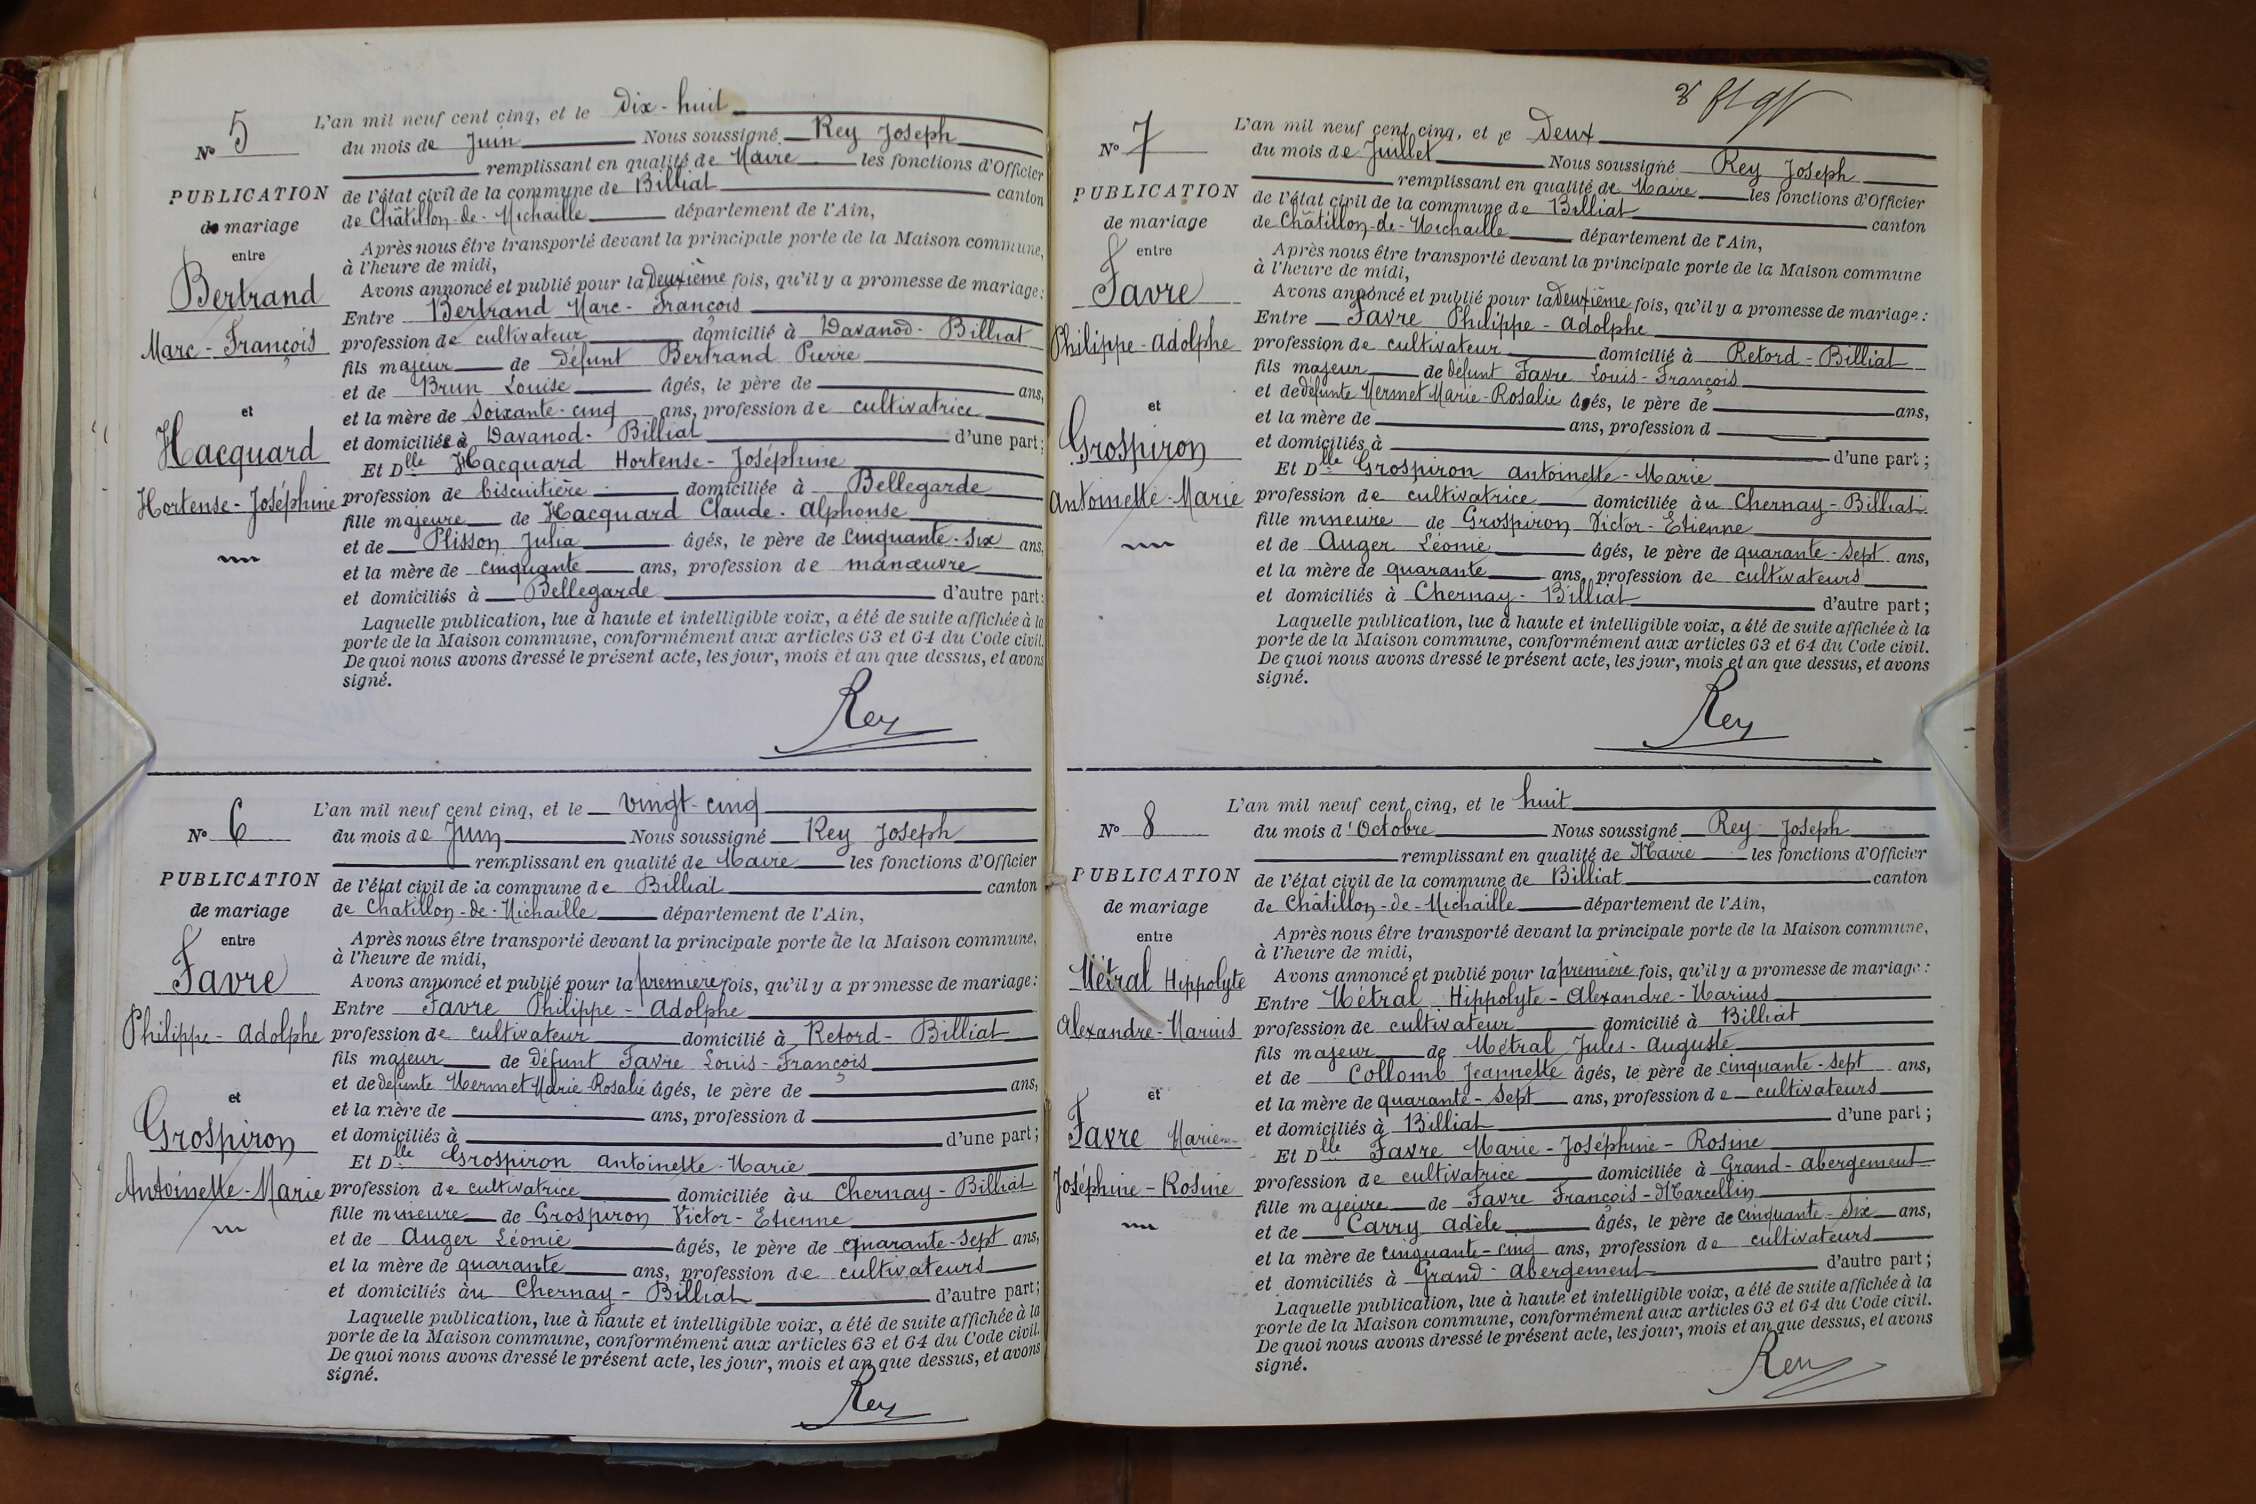 N° 5
PUBLICATION
de mariage
entre
Bertrand
Marc-François
et
Hacquard
Hortense-Joséphine
L'an mil neuf cent cinq, et le Dix-huit
du mois de Juin Nous soussigné Rey Joseph
remplissant en qualité de Maire les fonctions d'Officier
de l'état civil de la commune de Billiat canton
de Châtillon-de-Michaille département de l'Ain,
Après nous être transporté devant la principale porte de la Maison commune,
à l'heure de midi,
Avons annoncé et publié pour la Deuxième fois, qu'il y a promesse de mariage:
Entre Bertrand Marc-François
profession de cultivateur domicilié à Davanod-Billiat
fils majeur de défunt Bertrand Pierre
et de Brun Louise âgés, le père de ans,
et la mère de soixante-cinq ans, profession de cultivatrice
et domiciliés à Davanod-Billiat d'une part;
Et Dlle Hacquard Hortense-Joséphine
profession de biscuitière domiciliée à Bellegarde
fille majeure de Hacquard Claude-Alphonse
et de Plisson Julia âgés, le père de cinquante-six ans,
et la mère de cinquante ans, profession de manœuvre
et domiciliés à Bellegarde d'autre part:
Laquelle publication, lue à haute et intelligible voix, a été de suite affichée à la
porte de la Maison commune, conformément aux articles 63 et 64 du Code civil.
De quoi nous avons dressé le présent acte, les jour, mois et an que dessus, et avons
signé.
Rey
N° 6
PUBLICATION
de mariage
entre
Favre
Philippe-Adolphe
et
Grospiron
Antoinette-Marie
L'an mil neuf cent cinq, et le vingt-cinq
du mois de Juin Nous soussigné Rey Joseph
remplissant en qualité de Maire les fonctions d'Officier
de l'état civil de la commune de Billiat canton
de Chatillon-de-Michaille département de l'Ain,
Après nous être transporté devant la principale porte de la Maison commune,
à l'heure de midi,
Avons annoncé et publié pour la première fois, qu'il y a promesse de mariage:
Entre Favre Philippe-Adolphe
profession de cultivateur domicilié à Retord-Billiat
fils majeur de défunt Favre Louis-François
et de défunte Mermet Marie-Rosalie âgés, le père de ans,
et la mère de ans, profession d
et domiciliés à d'une part;
Et Dlle Grospiron Antoinette-Marie
profession de cultivatrice domiciliée àu Chernay-Billiat
fille mineure de Grospiron Victor-Etienne
et de Auger Léonie âgés, le père de quarante-sept ans,
et la mère de quarante ans, profession de cultivateurs
et domiciliés àu Chernay-Billiat d'autre part;
Laquelle publication, lue à haute et intelligible voix, a été de suite affichée à la
porte de la Maison commune, conformément aux articles 63 et 64 du Code civil.
De quoi nous avons dressé le présent acte, les jour, mois et an que dessus, et avons
signé.
Rey
N° 7
PUBLICATION
de mariage
entre
Favre
Philippe-Adolphe
et
Grospiron
Antoinette-Marie
L'an mil neuf cent cinq, et le Deux
du mois de Juillet Nous soussigné Rey Joseph
remplissant en qualité de Maire les fonctions d'Officier
de l'état civil de la commune de Billiat canton
de Châtillon-de-Michaille département de l'Ain,
Après nous être transporté devant la principale porte de la Maison commune
à l'heure de midi,
Avons annoncé et publié pour la Deuxième fois, qu'il y a promesse de mariage:
Entre Favre Philippe-Adolphe
profession de cultivateur domicilié à Retord-Billiat
fils majeur de défunt Favre Louis-François
et de défunte Mermet Marie-Rosalie âgés, le père de ans,
et la mère de ans, profession d
et domiciliés à d'une part;
Et Dlle Grospiron Antoinette-Marie
profession de cultivatrice domiciliée àu Chernay-Billiat
fille mineure de Grospiron Victor-Etienne
et de Auger Léonie âgés, le père de quarante-sept ans,
et la mère de quarante ans, profession de cultivateurs
et domiciliés à Chernay-Billiat d'autre part;
Laquelle publication, lue à haute et intelligible voix, a été de suite affichée à la
porte de la Maison commune, conformément aux articles 63 et 64 du Code civil.
De quoi nous avons dressé le présent acte, les jour, mois et an que dessus, et avons
signé.
Rey
N° 8
PUBLICATION
de mariage
entre
Métral Hippolyte
Alexandre-Marius
et
Favre Marie
Joséphine-Rosine
L'an mil neuf cent cinq, et le huit
du mois d'Octobre Nous soussigné Rey Joseph
remplissant en qualité de Maire les fonctions d'Officier
de l'état civil de la commune de Billiat canton
de Châtillon-de-Michaille département de l'Ain,
Après nous être transporté devant la principale porte de la Maison commune,
à l'heure de midi,
Avons annoncé et publié pour la première fois, qu'il y a promesse de mariage:
Entre Métral Hippolyte-Alexandre-Marius
profession de cultivateur domicilié à Billiat
fils majeur de Métral Jules-Auguste
et de Collomb Jeannette âgés, le père de cinquante-sept ans,
et la mère de quarante-sept ans, profession de cultivateurs
et domiciliés à Billiat d'une part;
Et Dlle Favre Marie-Joséphine-Rosine
profession de cultivatrice domiciliée à Grand-Abergement
fille majeure de Favre François-Marcellin
et de Carry Adèle âgés, le père de cinquante-six ans,
et la mère de cinquante-cinq ans, profession de cultivateurs
et domiciliés à Grand-Abergement d'autre part;
Laquelle publication, lue à haute et intelligible voix, a été de suite affichée à la
porte de la Maison commune, conformément aux articles 63 et 64 du Code civil.
De quoi nous avons dressé le présent acte, les jour, mois et an que dessus, et avons
signé.
Rey